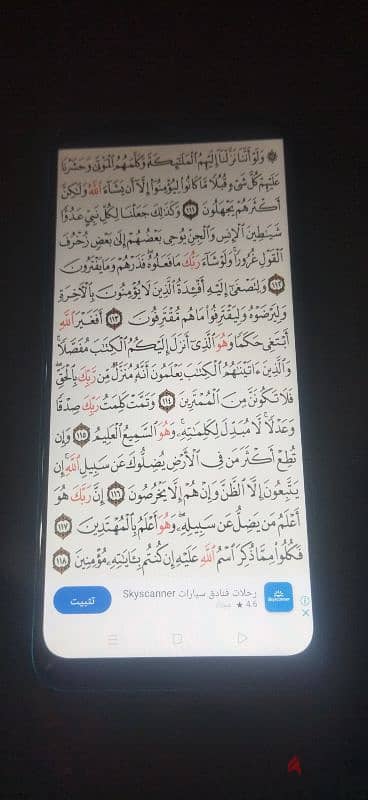 ۞ وَلَوْ أَنَّنَا نَزَّلْنَا إِلَيْهِمُ الْمَلَٰٓئِكَةَ وَكَلَّمَهُمُ الْمَوْتَىٰ وَحَشَرْنَا
عَلَيْهِمْ كُلَّ شَيْءٍ قُبُلًا مَّا كَانُوا لِيُؤْمِنُوٓا إِلَّآ أَن يَشَآءَ اللَّهُ وَلَٰكِنَّ
أَكْثَرَهُمْ يَجْهَلُونَ ١١١ وَكَذَٰلِكَ جَعَلْنَا لِكُلِّ نَبِيٍّ عَدُوًّا
شَيَٰطِينَ الْإِنسِ وَالْجِنِّ يُوحِي بَعْضُهُمْ إِلَىٰ بَعْضٍ زُخْرُفَ
الْقَوْلِ غُرُورًا وَلَوْ شَآءَ رَبُّكَ مَا فَعَلُوهُ فَذَرْهُمْ وَمَا يَفْتَرُونَ
١١٢ وَلِتَصْغَىٰٓ إِلَيْهِ أَفْـِٔدَةُ الَّذِينَ لَا يُؤْمِنُونَ بِالْءَاخِرَةِ
وَلِيَرْضَوْهُ وَلِيَقْتَرِفُوا مَا هُم مُّقْتَرِفُونَ ١١٣ أَفَغَيْرَ اللَّهِ
أَبْتَغِي حَكَمًا وَهُوَ الَّذِيٓ أَنزَلَ إِلَيْكُمُ الْكِتَٰبَ مُفَصَّلًا
وَالَّذِينَ ءَاتَيْنَٰهُمُ الْكِتَٰبَ يَعْلَمُونَ أَنَّهُۥ مُنَزَّلٌ مِّن رَّبِّكَ بِالْحَقِّ
فَلَا تَكُونَنَّ مِنَ الْمُمْتَرِينَ ١١٤ وَتَمَّتْ كَلِمَتُ رَبِّكَ صِدْقًا
وَعَدْلًا لَّا مُبَدِّلَ لِكَلِمَٰتِهِۦ وَهُوَ السَّمِيعُ الْعَلِيمُ ١١٥ وَإِن
تُطِعْ أَكْثَرَ مَن فِي الْأَرْضِ يُضِلُّوكَ عَن سَبِيلِ اللَّهِ إِن
يَتَّبِعُونَ إِلَّا الظَّنَّ وَإِنْ هُمْ إِلَّا يَخْرُصُونَ ١١٦ إِنَّ رَبَّكَ هُوَ
أَعْلَمُ مَن يَضِلُّ عَن سَبِيلِهِۦ وَهُوَ أَعْلَمُ بِالْمُهْتَدِينَ ١١٧
فَكُلُوا مِمَّا ذُكِرَ اسْمُ اللَّهِ عَلَيْهِ إِن كُنتُم بِـَٔايَٰتِهِۦ مُؤْمِنِينَ ١١٨
Skyscanner رحلات فنادق سيارات
4.6 ★ مجانًا
Skyscanner
تثبيت